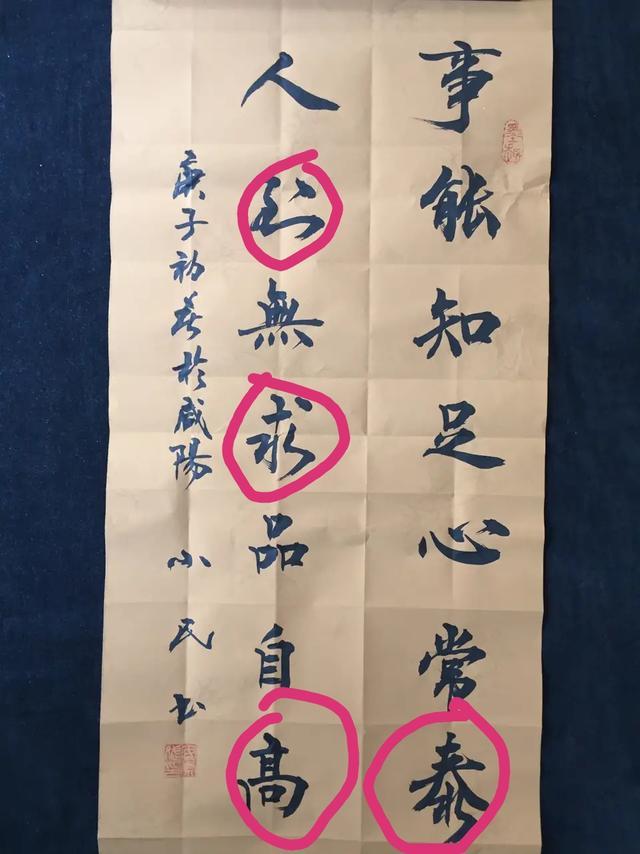 事能知足心常泰
人到無求品自高
庚子初春於咸陽 小民书